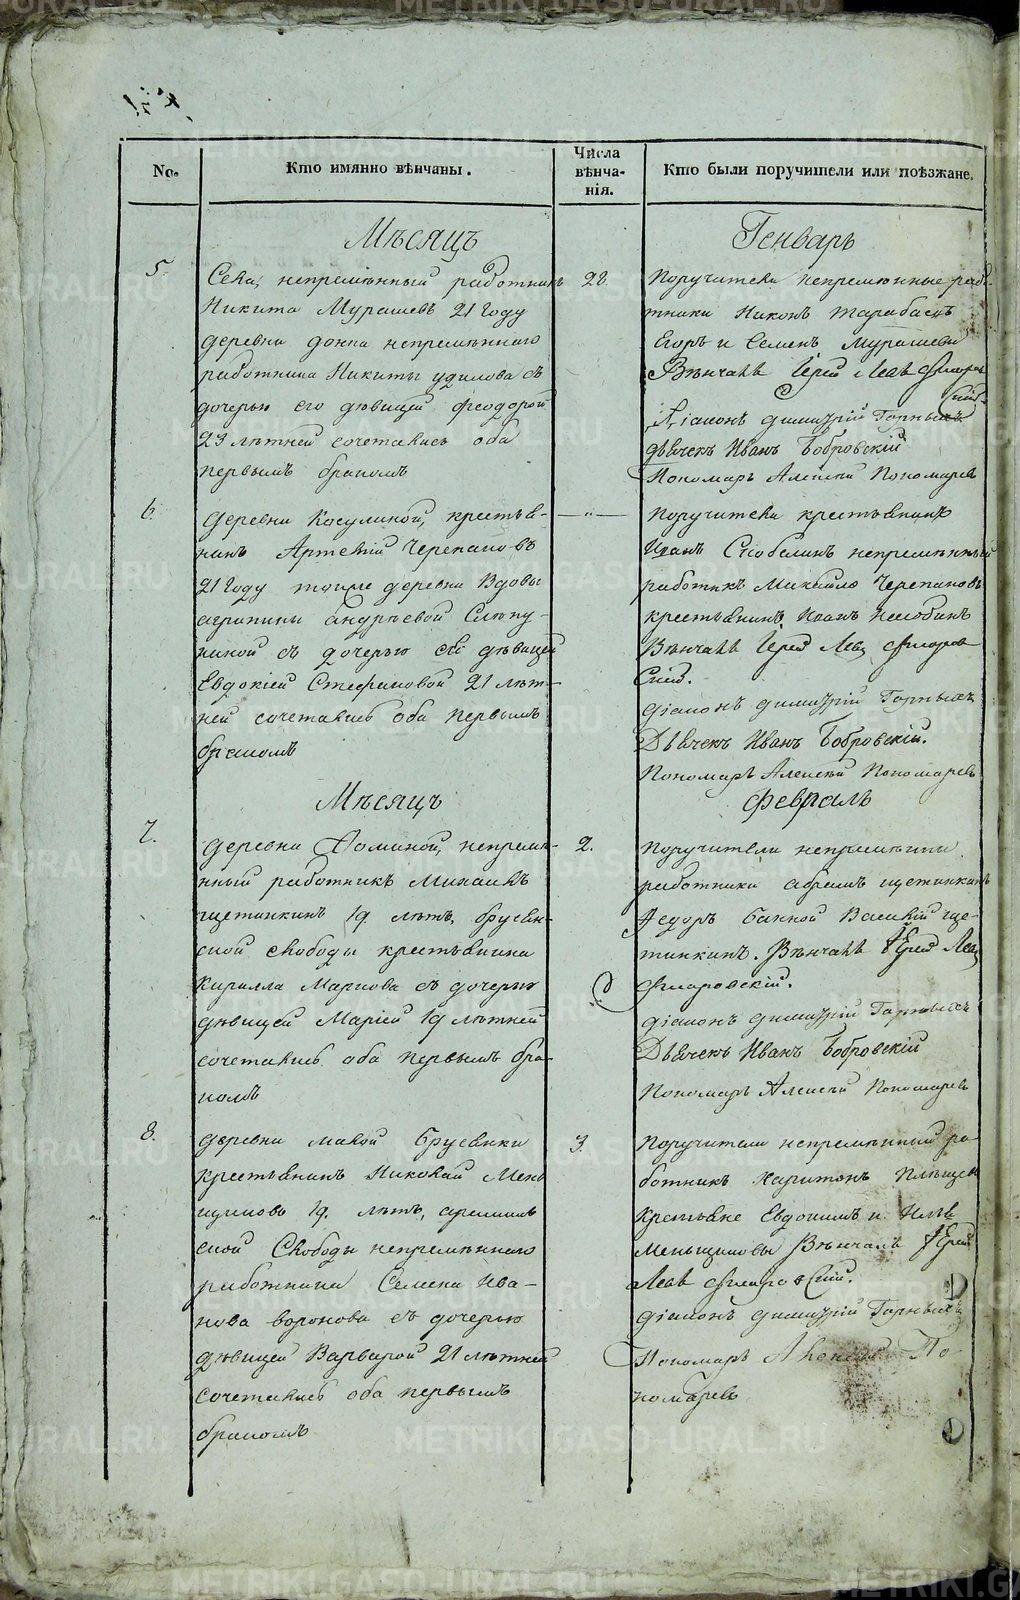 No.
Кто имянно вѣнчаны.
Числа
вѣнча-
нія.
Кто были поручители или поѣзжане.
Мѣсяцъ
Генварь
5.
Села, непремѣнный работникъ
Никита Мурашевъ 21 году
деревни непремѣннаго
работника Никиты Удилова съ
дочерью его дѣвицей Феодорой
23 лѣтней сочетались оба
первымъ бракомъ
28.
Поручители непремѣнные рабо-
тники Никонъ Тарабаевъ
Егоръ и Семенъ Мурашевы
Вѣнчалъ Іерей Левъ Флоров
скій
Діаконъ Димитрій Горныхъ
дьячекъ Иванъ Бобровскій
Пономарь Алексѣй Пономаревъ
6.
деревни Косулиной, крестья-
нинъ Артемій Черепановъ
21 году тойже деревни Вдовы
Агрипины Андреевой
съ дочерью ея дѣвицей
Евдокіей Стефановой 21 лѣт-
ней сочетались оба первымъ
бракомъ
— " —
Поручители крестьянинъ
Иванъ непремѣнный
работникъ Михайло Черепановъ
крестьянинъ Иванъ
Вѣнчалъ Іерей Левъ Флоров
скій.
Діаконъ Димитрій Горныхъ
Дьячекъ Иванъ Бобровскій.
Пономарь Алексѣй Пономаревъ
Мѣсяцъ
Февраль
7.
деревни Фоминой, непремѣ-
нный работникъ Михаилъ
Щетинкинъ 19 лѣтъ, Брусян-
ской слободы крестьянина
Кирилла Маркова съ дочерью
дѣвицей Маріей 19 лѣтней
сочетались оба первымъ бра-
комъ
2.
Поручители непремѣнны
работники Абрамъ Щетинкинъ
Федоръ Банной Василій Ще-
тинкинъ. Вѣнчалъ Іерей Левъ
Флоровскій.
Діаконъ Димитрій Горныхъ
Дьячекъ Иванъ Бобровскій
Пономарь Алексѣй Пономаревъ
8.
деревни малой Брусянки
крестьянинъ Николай Мень
щиковъ 19. лѣтъ, арамиль
ской Слободы непремѣннаго
работника Семена Ива-
нова Воронова съ дочерью
дѣвицей Варварой 21 лѣтней
сочетались оба первымъ
бракомъ
3.
Поручители непремѣнный ра-
ботникъ Харитонъ
крестьяне Евдокимъ и Илья
Меньщиковы Вѣнчалъ Іерей
Левъ Флоровскій.
Діаконъ Димитрій Горныхъ
Пономарь Алексѣй По
номаревъ